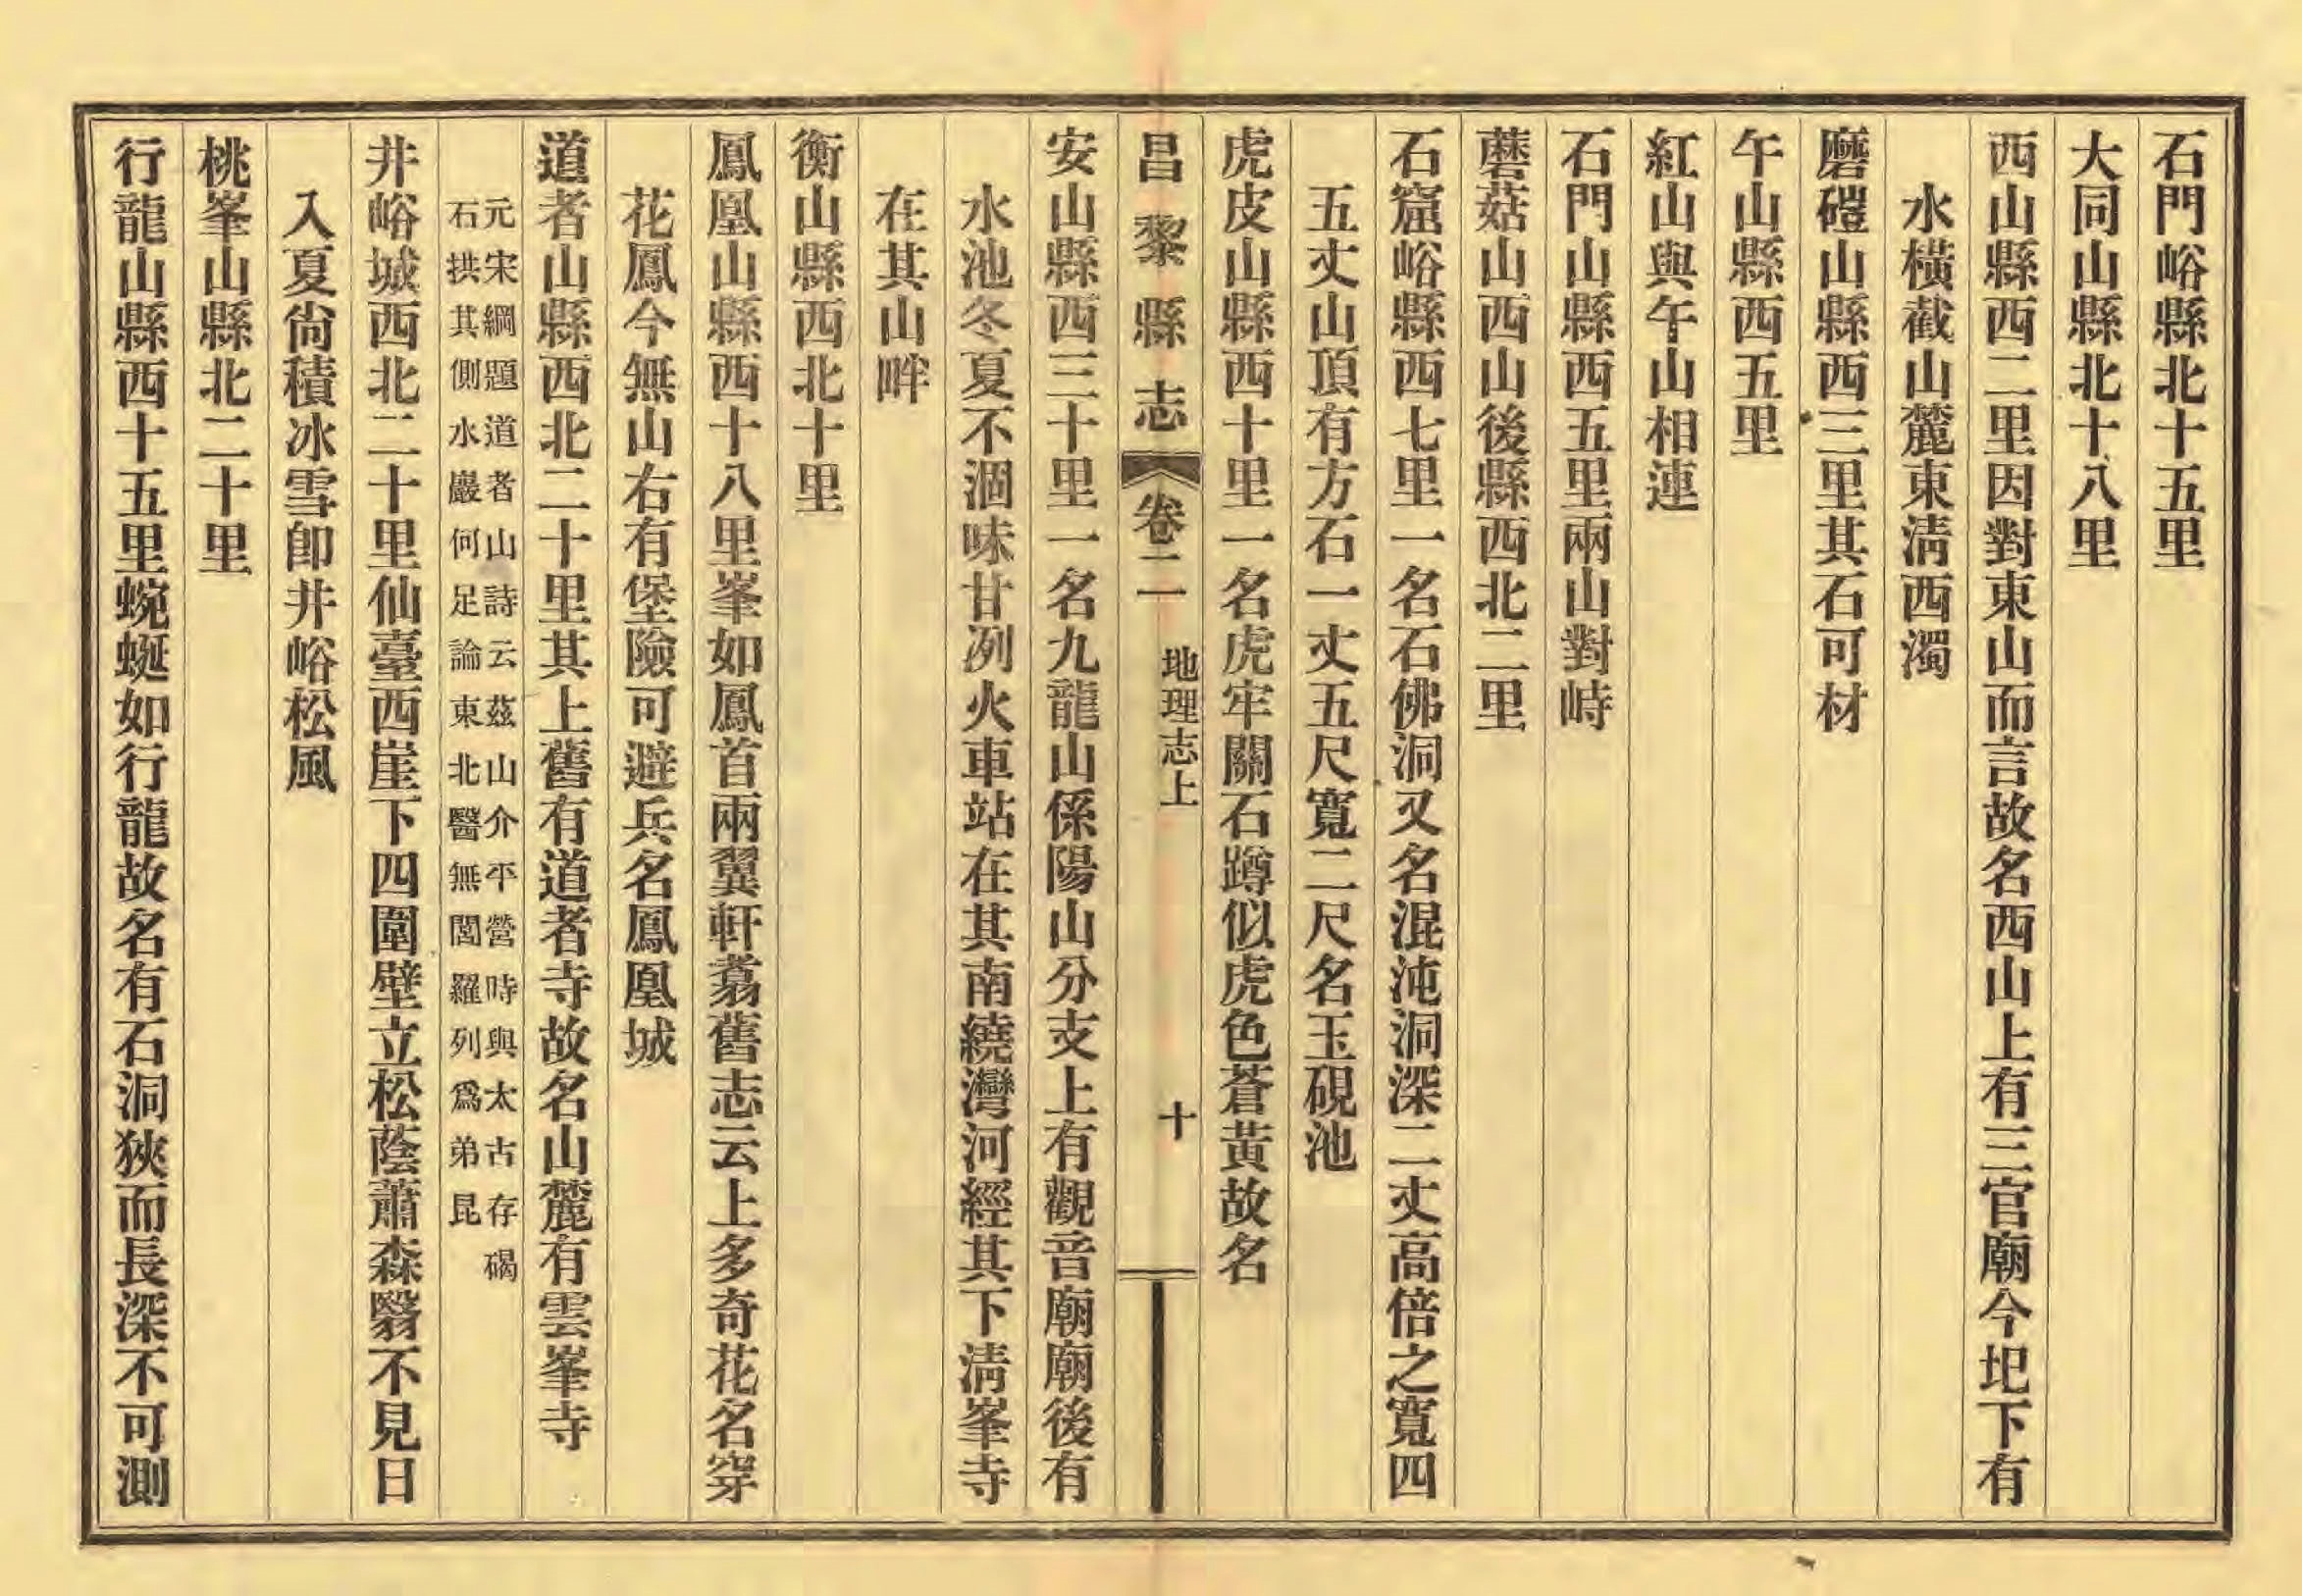 石門峪縣北十五里
大同山縣北十八里
西山縣西二里因對東山而言故名西山上有三官廟今圯下有
水橫截山麓東淸西濁
磨磑山縣西三里其石可材
午山縣西五里
紅山與午山相連
石門山縣西五里兩山對峙
蘑菇山西山後縣西北二里
石窟峪縣西七里一名石佛洞又名混沌洞深二丈高倍之寬四
五丈山頂有方石一丈五尺寬二尺名玉硯池
虎皮山縣西十里一名虎牢關石蹲似虎色蒼黃故名
昌黎縣志 卷二 地理志上 十
安山縣西三十里一名九龍山係陽山分支上有觀音廟廟後有
水池冬夏不涸味甘冽火車站在其南繞灣河經其下淸峯寺
在其山畔
衡山縣西北十里
鳳凰山縣西十八里峯如鳳首兩翼軒翥舊志云上多奇花名穿
花鳳今無山右有堡險可避兵名鳳凰城
道者山縣西北二十里其上舊有道者寺故名山麓有雲峯寺
元宋綱題道者山詩云茲山介平營時與太古存碣
石拱其側水巖何足論東北醫無閭羅列爲弟昆
井峪城西北二十里仙臺西崖下四圍壁立松蔭蕭森翳不見日
入夏尙積冰雪卽井峪松風
桃峯山縣北二十里
行龍山縣西十五里蜿蜒如行龍故名有石洞狹而長深不可測